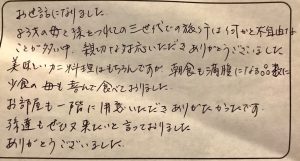 お世話になりました
幼い犬の母と孫とつれの三世代での旅行では何かと不自由な
ことが多い中、親切な対応いただきありがとうございました
美味しいカニ料理はもちろんですが朝食も満腹になる品数に
少食の母も喜んで食べておりました
お部屋も一階に用意いただきありがたかったです。
孫達もぜひ又来たいと言っておりました
ありがとうございました。